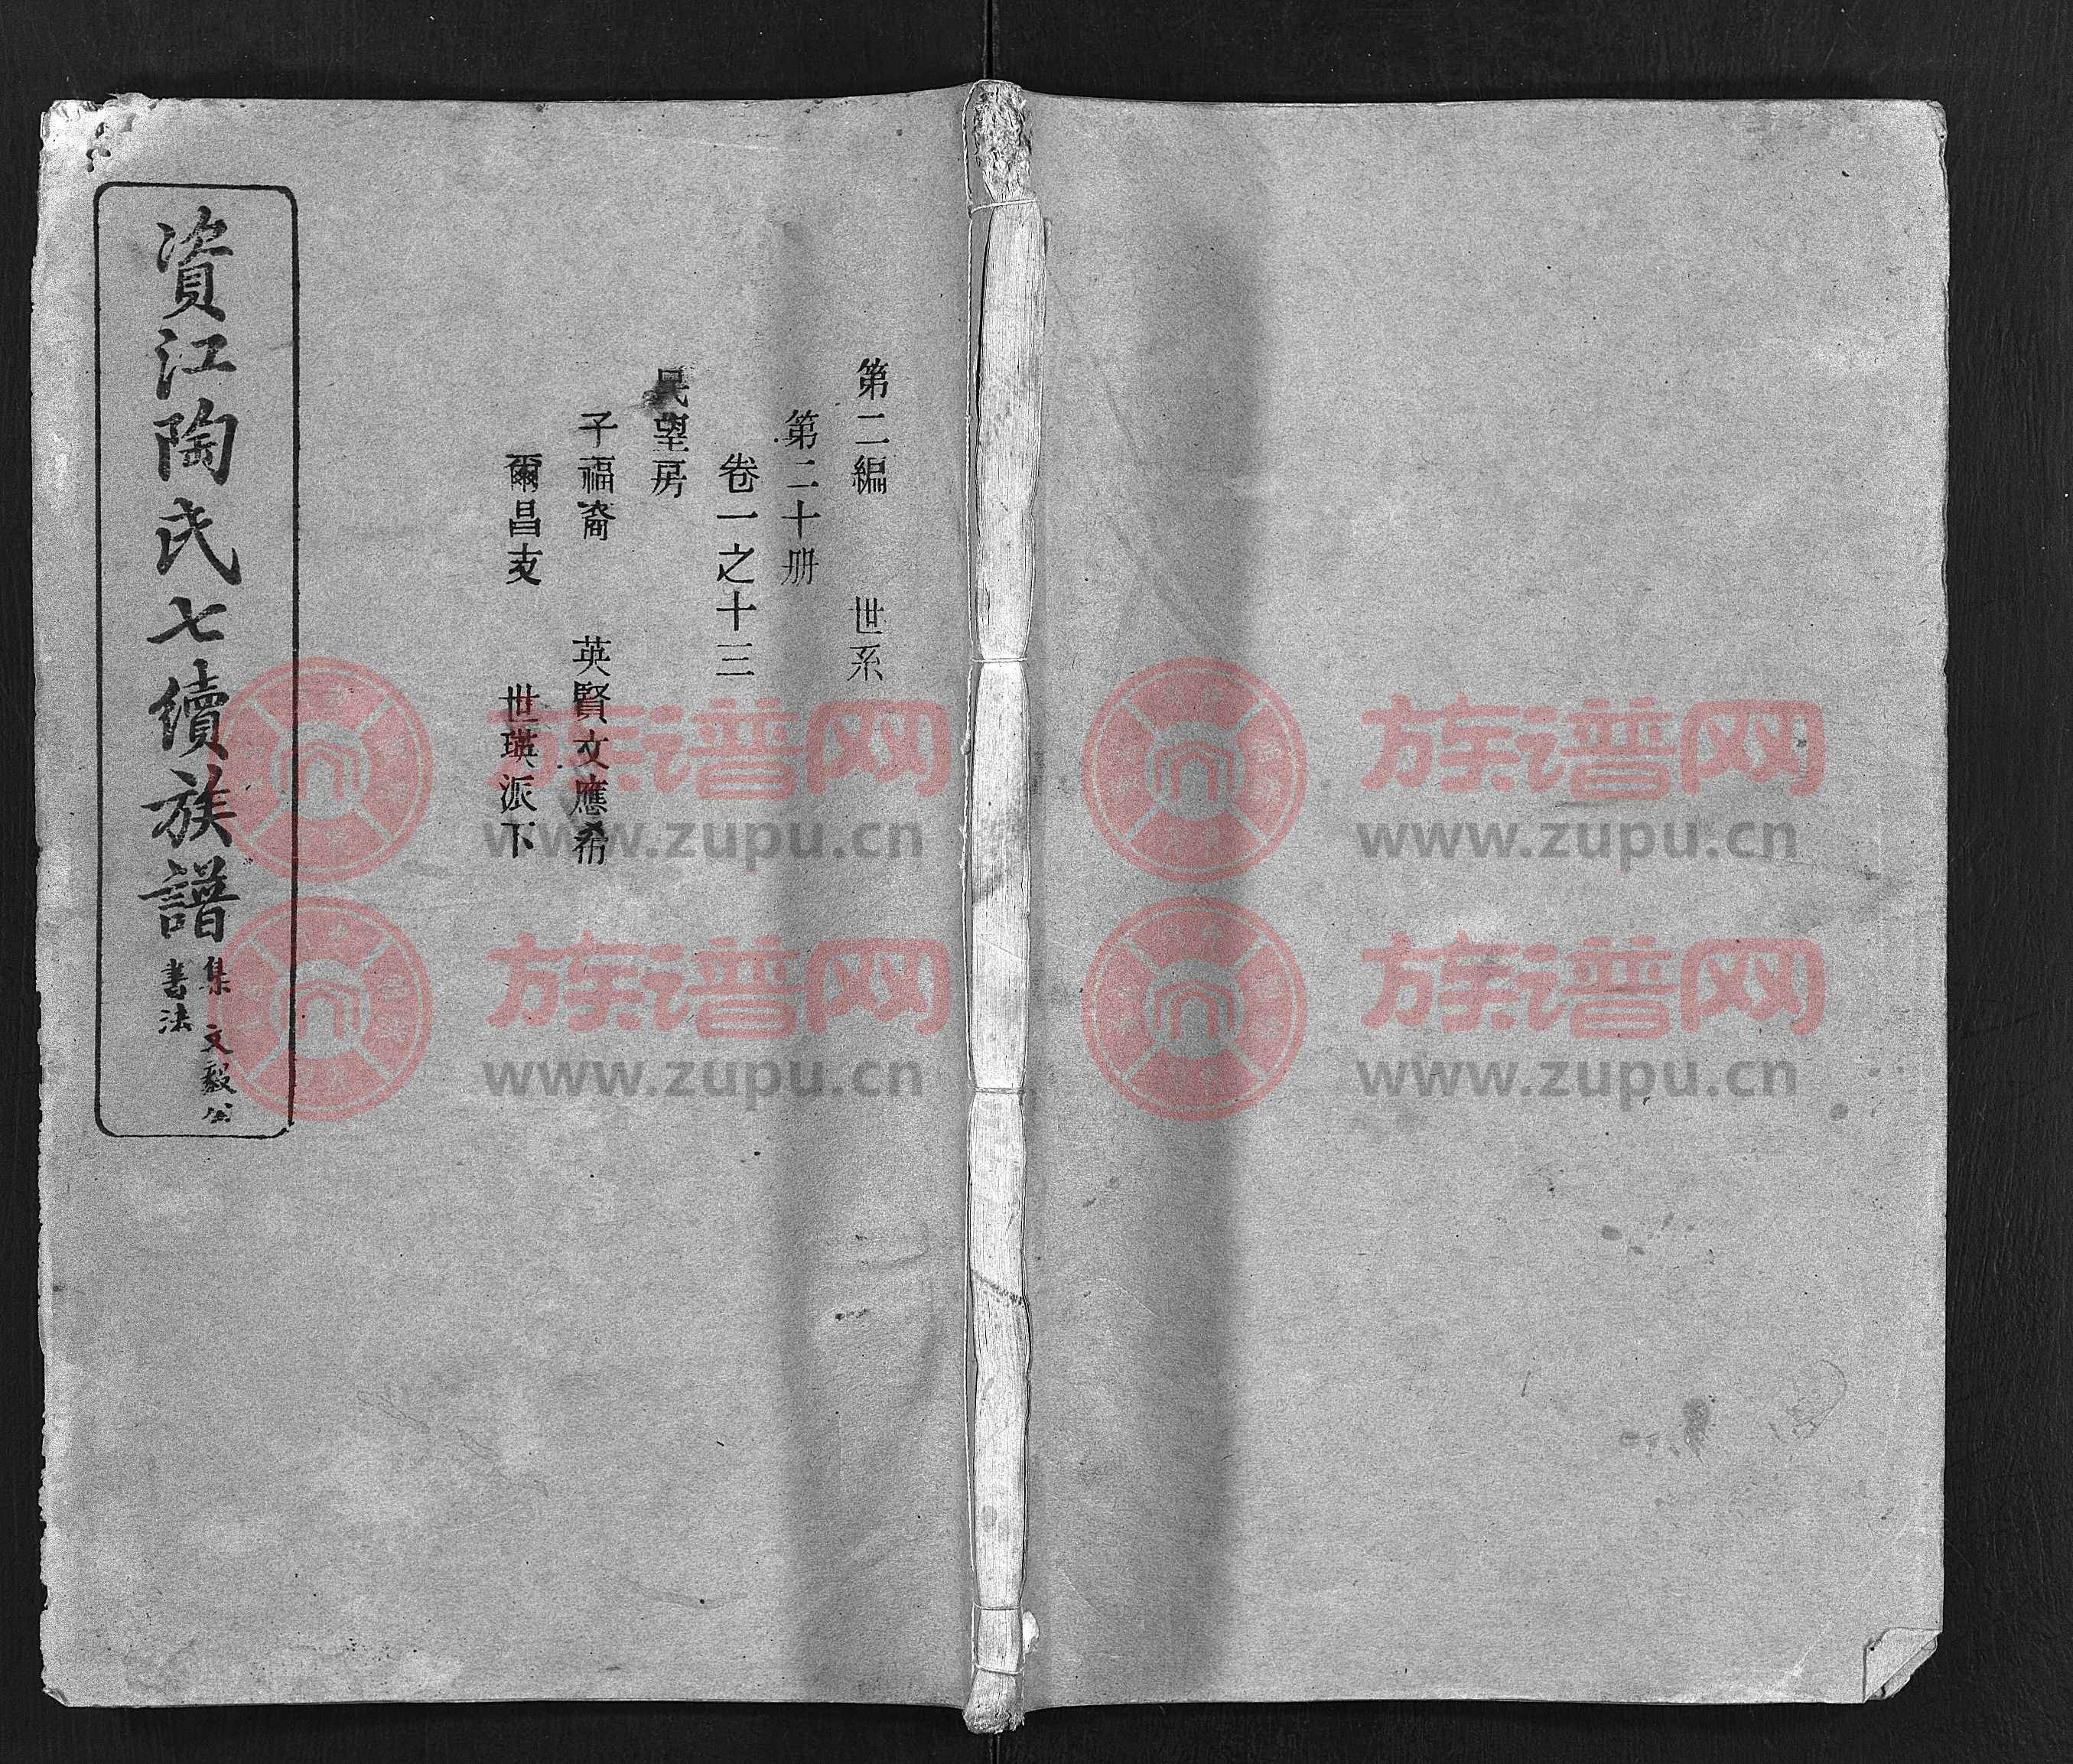 第二編　世系
第二十册
卷一之十三
民望房
子福裔　英賢文應希
爾昌支　世瑛派下
資江陶氏七續族譜
集　文毅公
書法
族谱网
www.zupu.cn
族谱网
www.zupu.cn
族谱网
www.zupu.cn
族谱网
www.zupu.cn